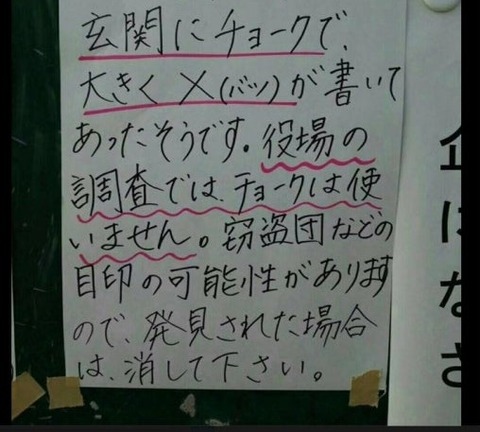 玄関にチョークで、
大きく×(バツ)が書いて
あったそうです。役場の
調査では、チョークは使
いません。窃盗団などの
目印の可能性があります
ので、発見された場合
は、消して下さい。
になさ